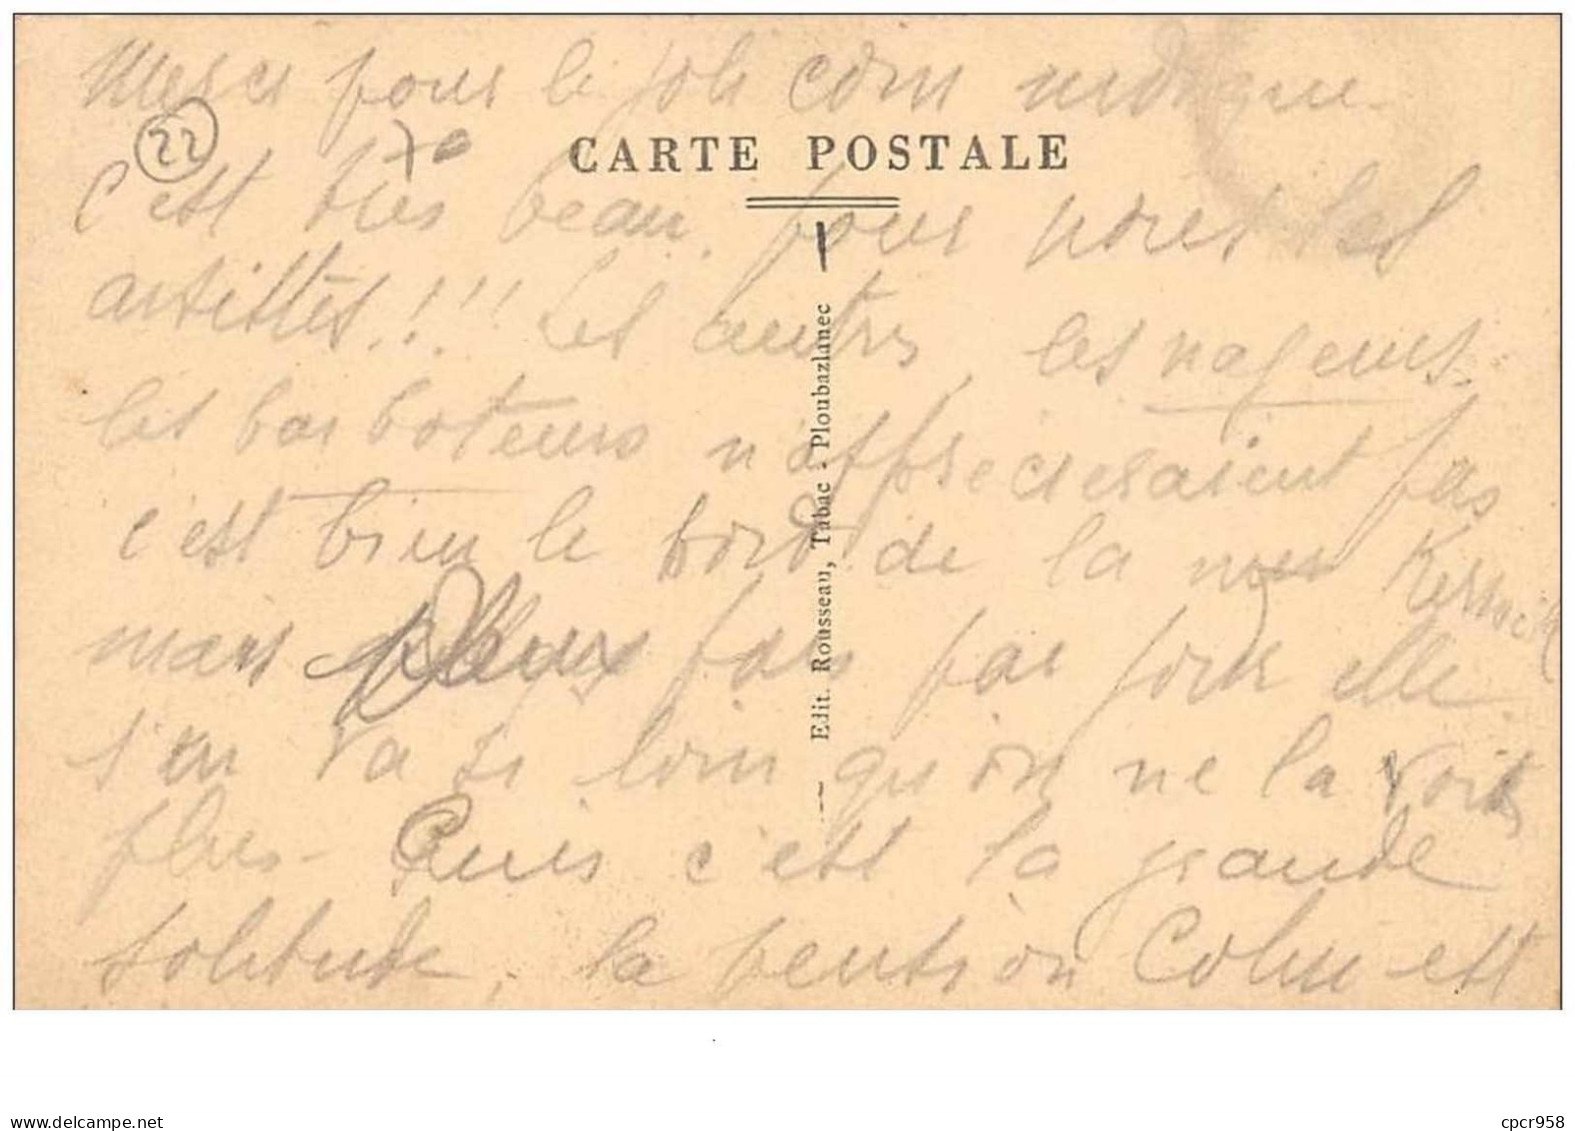 Merci pour le joli coin indique
22
CARTE POSTALE
C'est très beau, pour nous les
artistes!!! Les autres, les nageurs,
les barboteurs n'apprécieraient pas
c'est bien le bord de la mer
mais pas par fois elle
s'en va si loin qu'on ne la voit
plus - Puis c'est la grande
solitude, la pension Colin est
Edit. Rousseau, Tabac - Ploubazlanec
www.delcampe.net
cpcr958